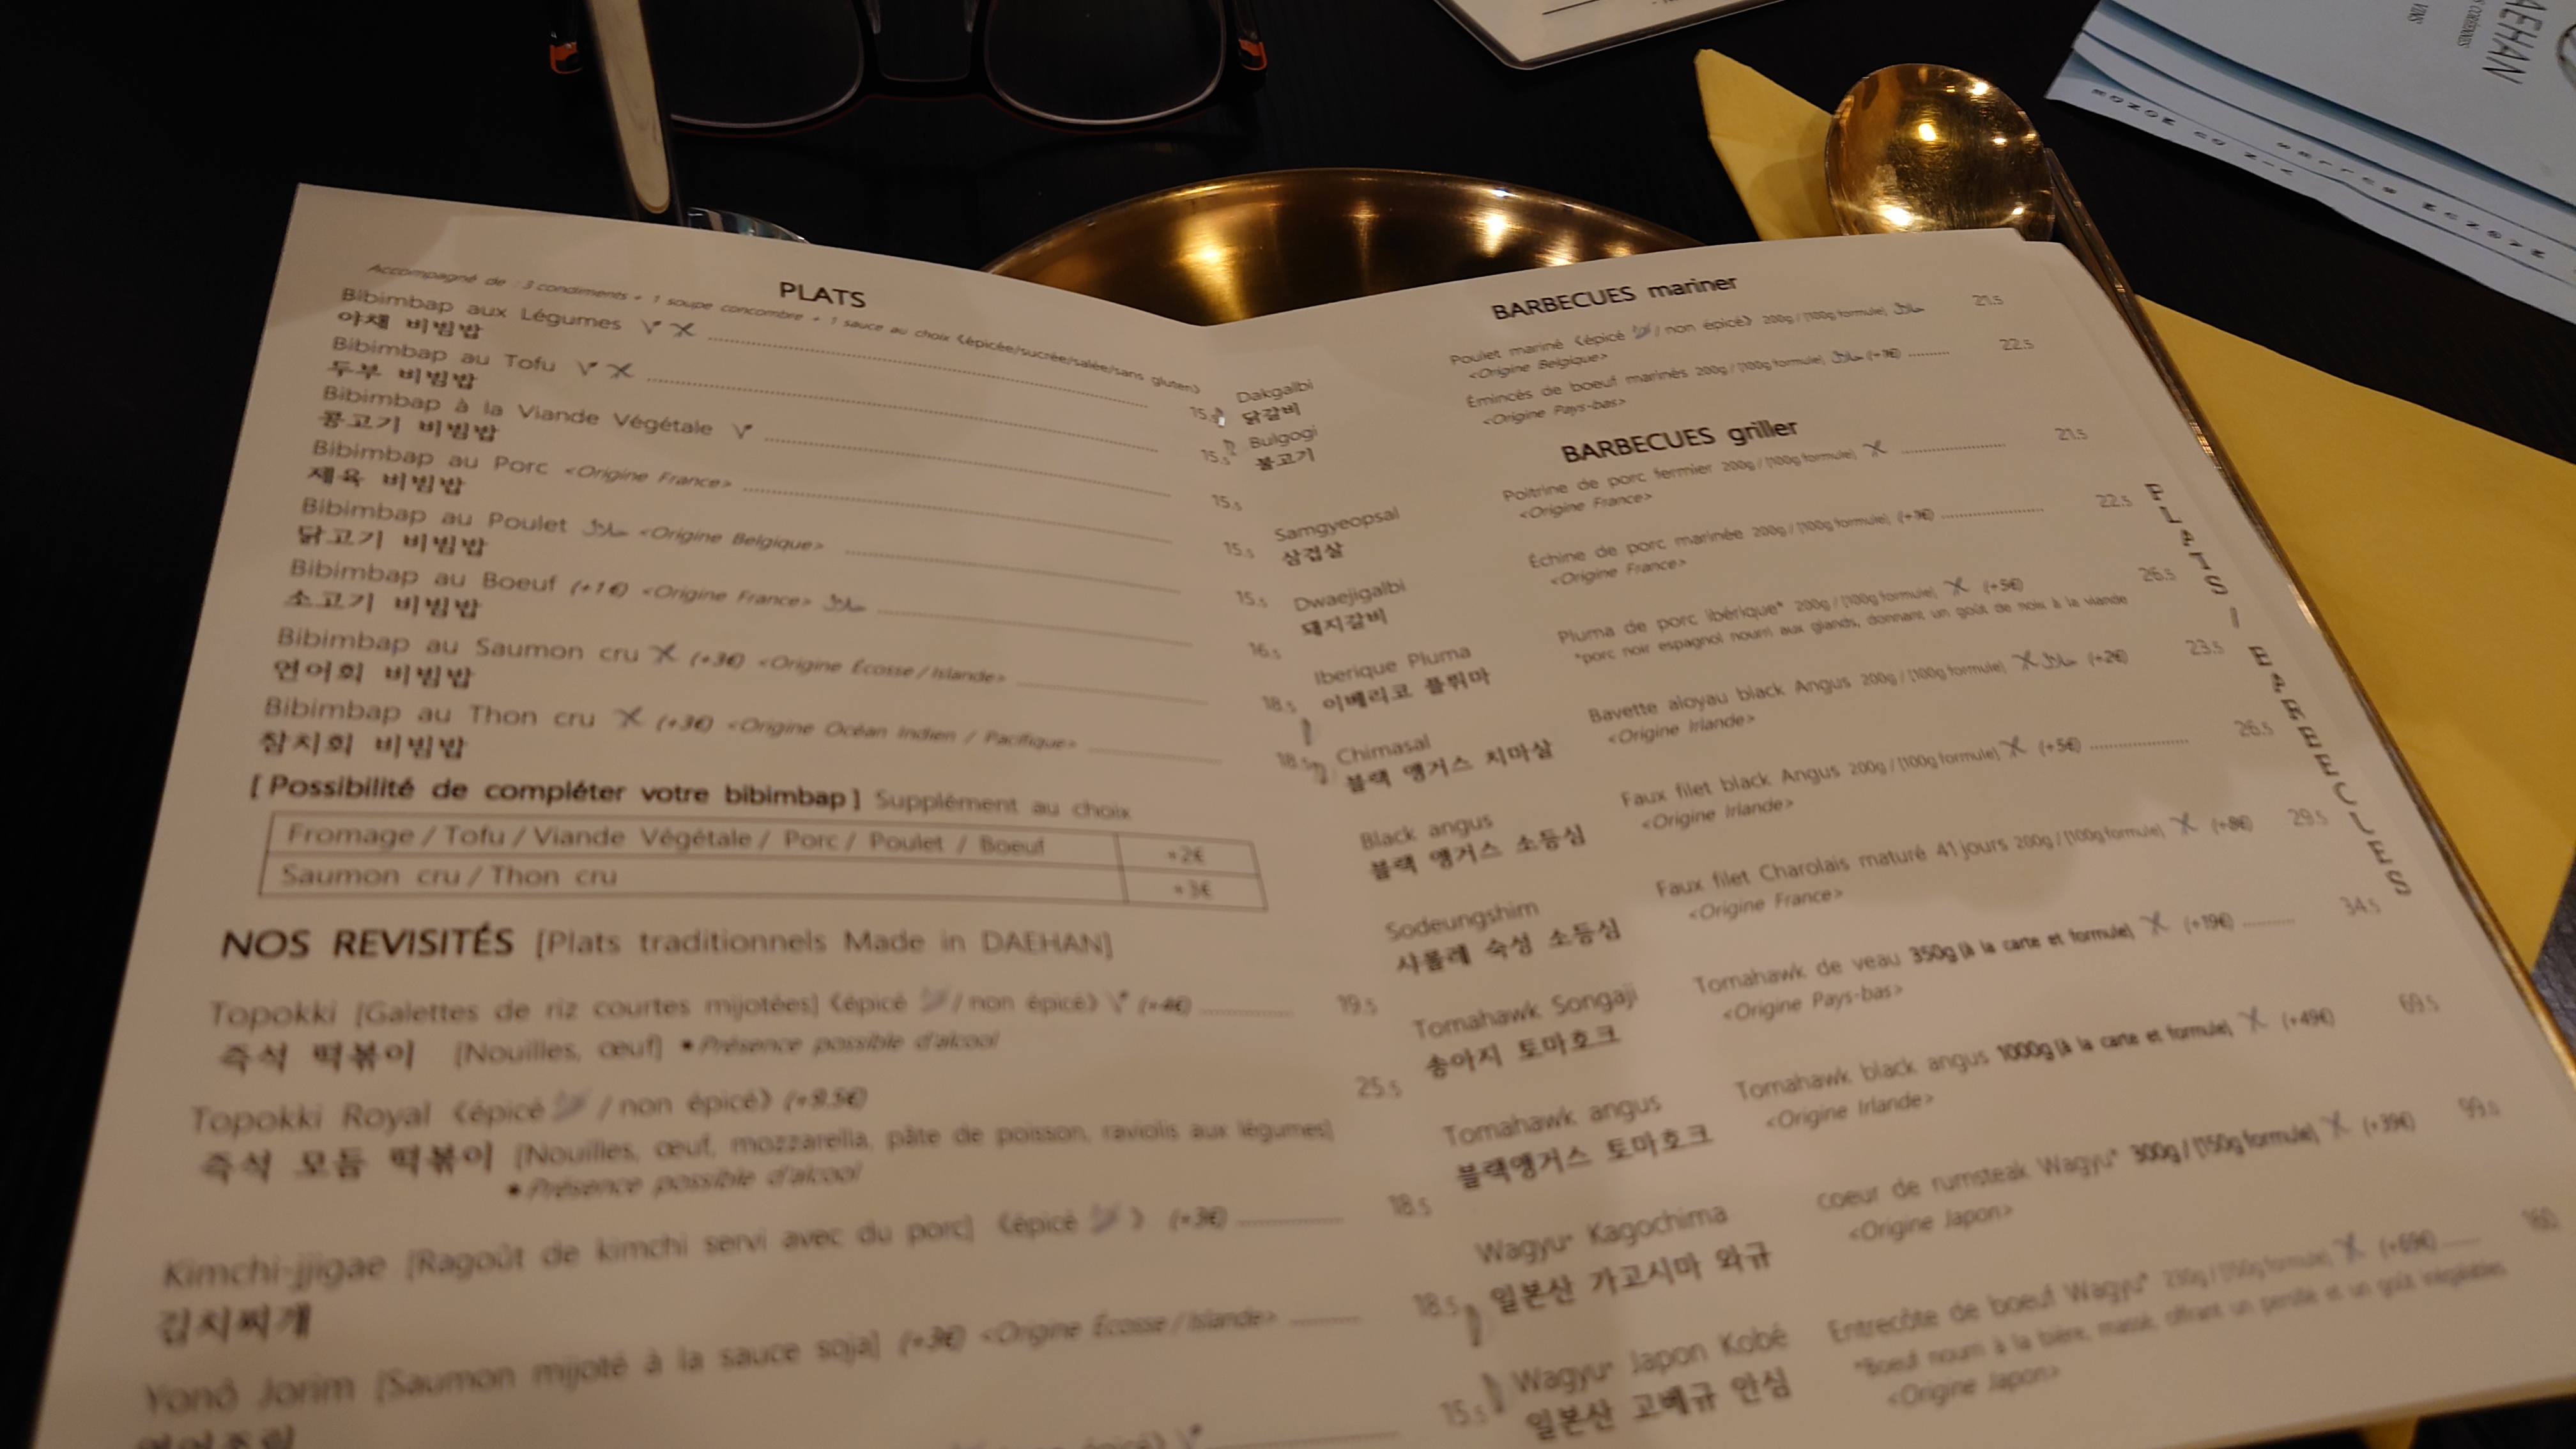 PLATS
Accompagné de : 3 condiments + 1 soupe concombre + 1 sauce au choix (épicée/sucrée/salée/sans gluten)
Bibimbap aux Légumes 15.5
야채 비빔밥
Bibimbap au Tofu 15.5
두부 비빔밥
Bibimbap à la Viande Végétale 15.5
콩고기 비빔밥
Bibimbap au Porc <Origine France> 15.5
제육 비빔밥
Bibimbap au Poulet <Origine Belgique> 15.5
닭고기 비빔밥
Bibimbap au Boeuf (+1€) <Origine France> 16.5
소고기 비빔밥
Bibimbap au Saumon cru (+3€) <Origine Écosse / Islande> 18.5
연어회 비빔밥
Bibimbap au Thon cru (+3€) <Origine Océan Indien / Pacifique> 18.5
참치회 비빔밥
[ Possibilité de compléter votre bibimbap ] Supplément au choix
Fromage / Tofu / Viande Végétale / Porc / Poulet / Boeuf +2€
Saumon cru / Thon cru +3€
NOS REVISITÉS [Plats traditionnels Made in DAEHAN]
Topokki [Galettes de riz courtes mijotées] (épicé / non épicé) (+4€) 19.5
즉석 떡볶이 [Nouilles, œuf] *Présence possible d'alcool
Topokki Royal (épicé / non épicé) (+9.5€) 25.5
즉석 모둠 떡볶이 [Nouilles, œuf, mozzarella, pâte de poisson, raviolis aux légumes]
*Présence possible d'alcool
Kimchi-jjigae [Ragoût de kimchi servi avec du porc] (épicé ) (+3€) 18.5
김치찌개
Yonô Jorim [Saumon mijoté à la sauce soja] (+3€) <Origine Écosse / Islande> 18.5
연어조림
15.5
BARBECUES mariner
Dakgalbi Poulet mariné (épicé / non épicé) 200g / [100g formule] 21.5
닭갈비 <Origine Belgique>
Bulgogi Émincés de boeuf marinés 200g / [100g formule] (+1€) 22.5
불고기 <Origine Pays-bas>
BARBECUES griller
Samgyeopsal Poitrine de porc fermier 200g / [100g formule] 21.5
삼겹살 <Origine France>
Dwaejigalbi Échine de porc marinée 200g / [100g formule] (+1€) 22.5
돼지갈비 <Origine France>
Iberique Pluma Pluma de porc ibérique* 200g / [100g formule] (+5€) 26.5
이베리코 플뤼마 *porc noir espagnol nourri aux glands, donnant un goût de noix à la viande
Chimasal Bavette aloyau black Angus 200g / [100g formule] (+2€) 23.5
블랙 앵거스 치마살 <Origine Irlande>
Black angus Faux filet black Angus 200g / [100g formule] (+5€) 26.5
블랙 앵거스 소등심 <Origine Irlande>
Sodeungshim Faux filet Charolais maturé 41 jours 200g / [100g formule] (+8€) 29.5
샤롤레 숙성 소등심 <Origine France>
Tomahawk Songaji Tomahawk de veau 350g [à la carte et formule] (+19€) 34.5
송아지 토마호크 <Origine Pays-bas>
Tomahawk angus Tomahawk black angus 1000g [à la carte et formule] (+49€) 69.5
블랙앵거스 토마호크 <Origine Irlande>
Wagyu* Kagochima Coeur de rumsteak Wagyu* 300g / [150g formule] (+39€) 99.5
일본산 가고시마 와규 <Origine Japon>
Wagyu* Japon Kobé Entrecôte de boeuf Wagyu* 230g / [150g formule] (+69€) 160
일본산 고베규 안심 *Boeuf nourri à la bière, massé, offrant un persillé et un goût inégalables
<Origine Japon>
PLATS / BARBECUES
AEHAN
VINS